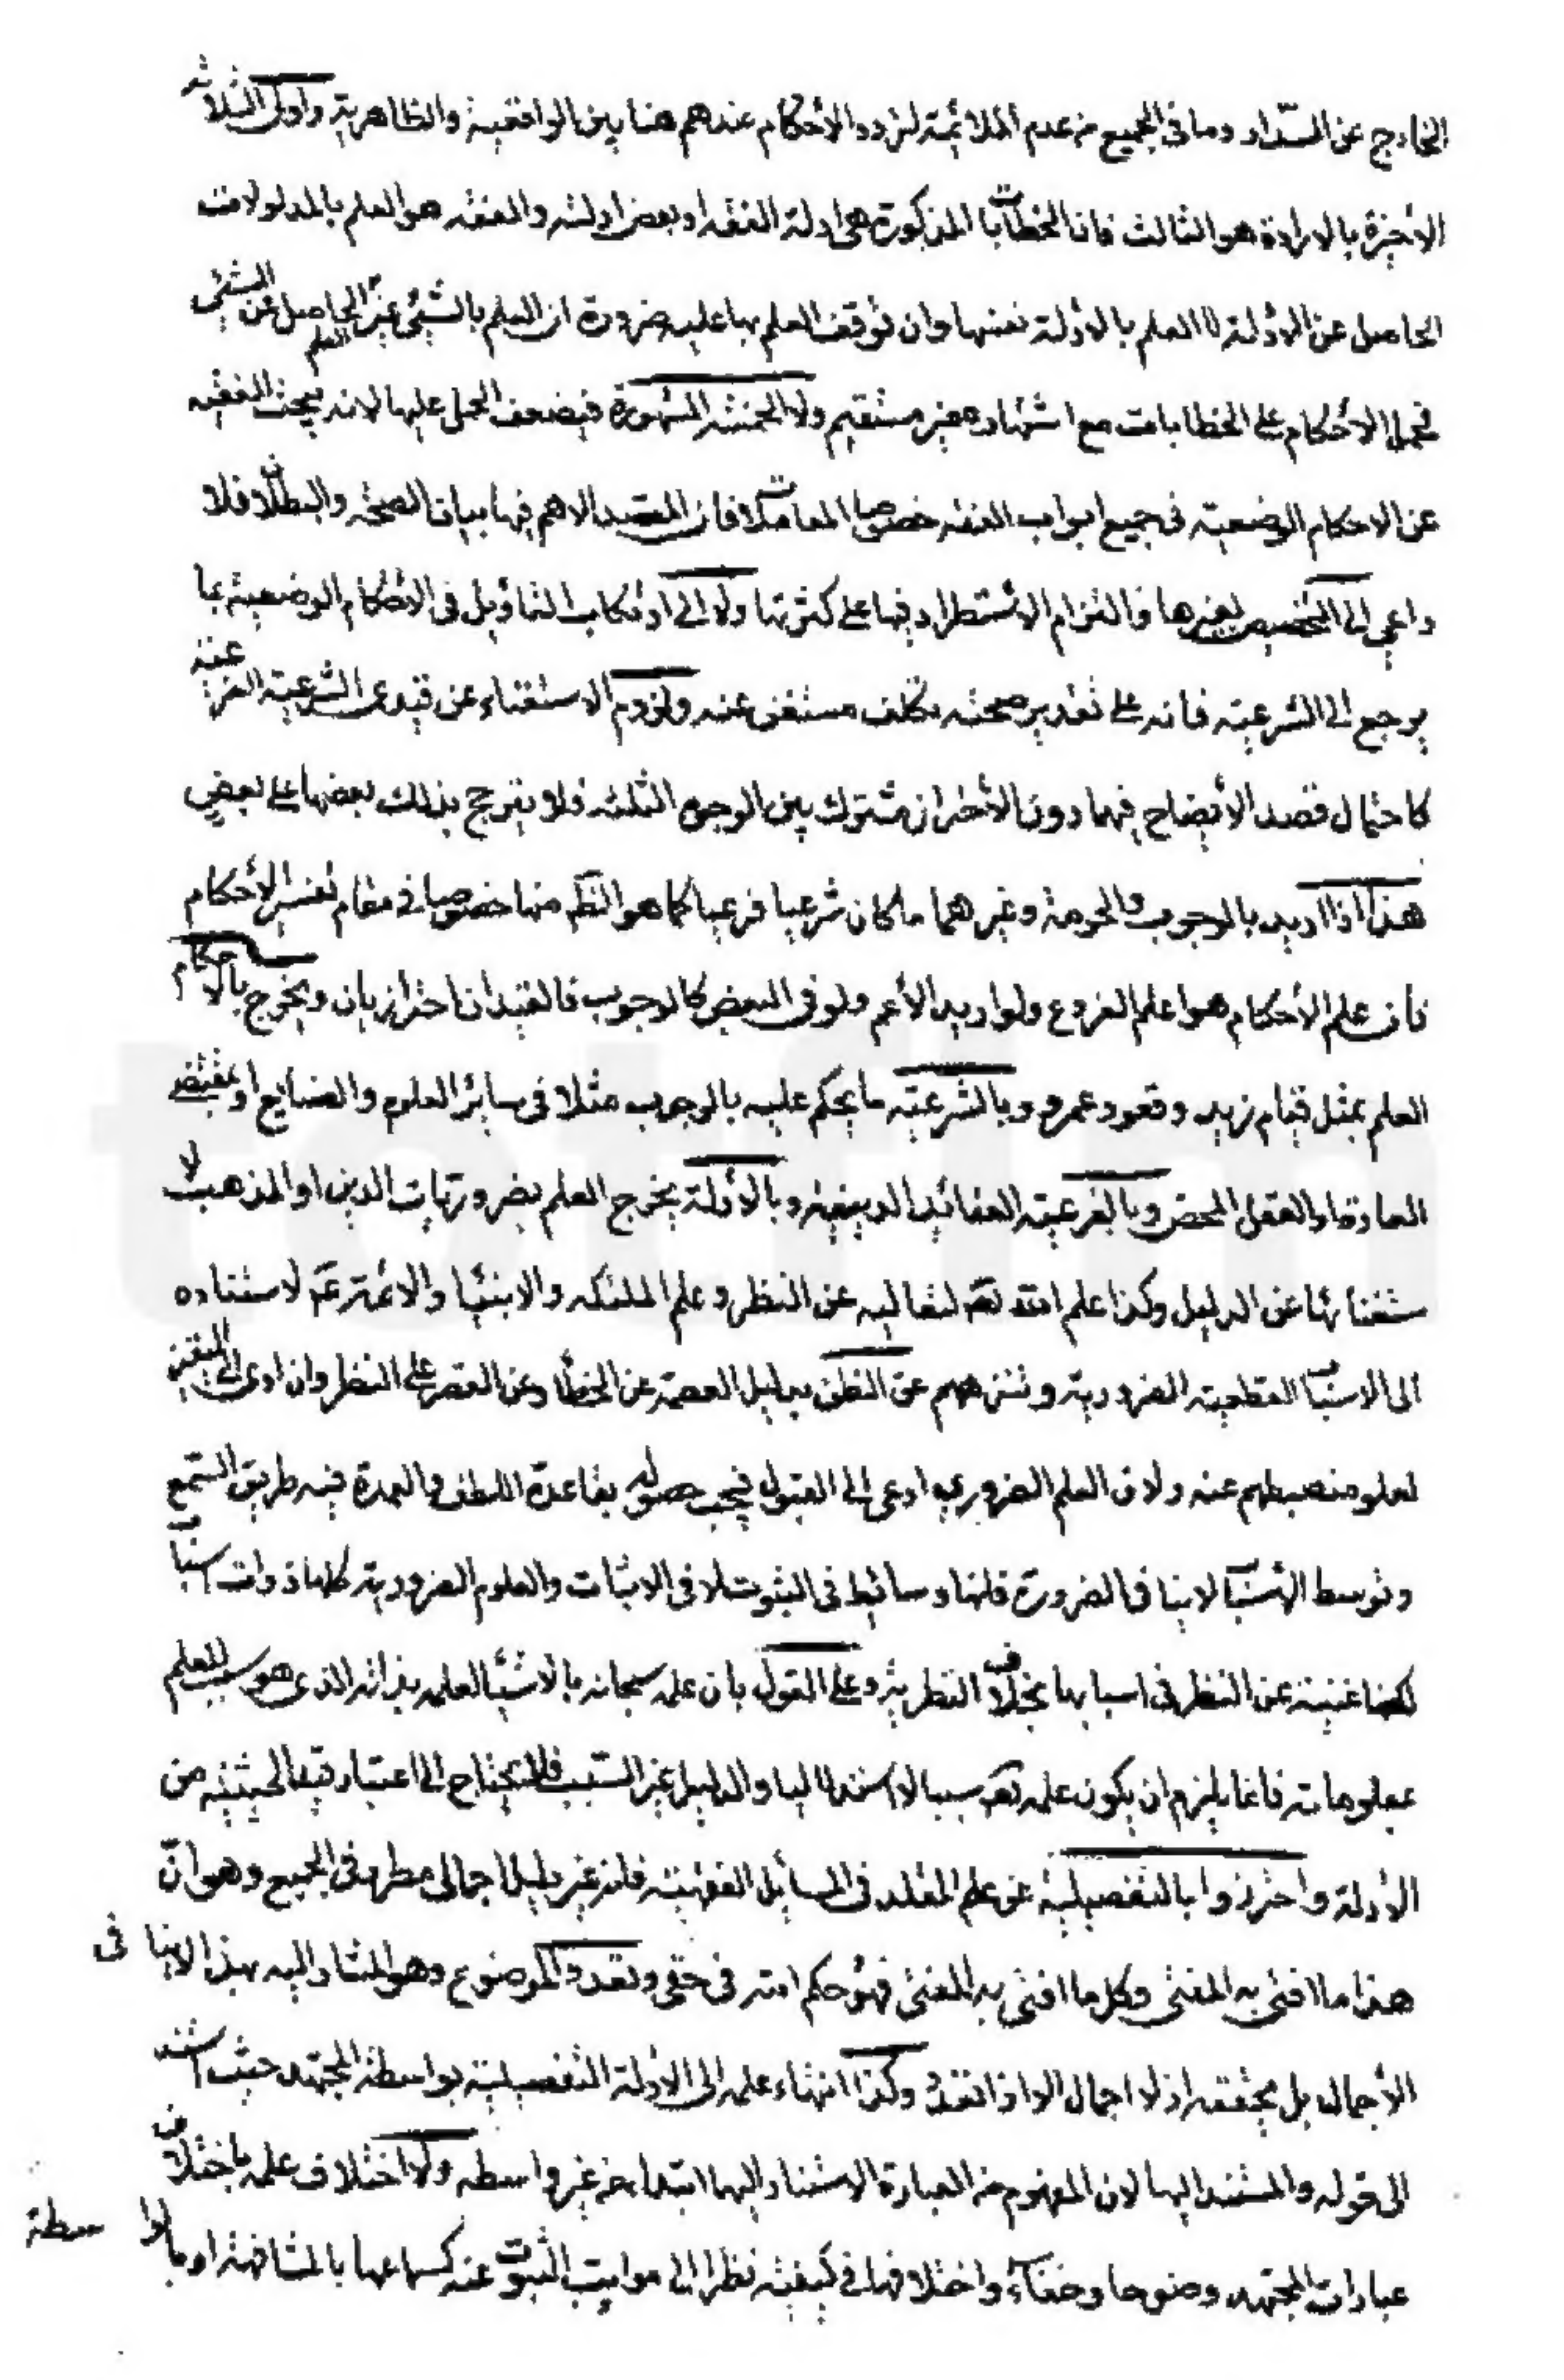 الخارج عن السّداد وما فى الجميع من عدم الملائمة لتردد الأحكام عندهم هنا بين الواقعية والظاهرية واولى الثلاثة
الأخيرة بالارادة هو الثالث فان الخطابات المذكورة هى ادلة الفقه او بعض ادلته والفقه هو العلم بالمدلولات
الحاصل عن الأدلة لا العلم بالأدلة نفسها وان توقف العلم بها عليه ضرورة ان العلم بالشيئ غير العلم الحاصل عن الشيئ
فحمل الأحكام على الخطابات مع اشتهاره غير مستقيم ولا الخمسة المشهورة فيضعف الحمل عليها لانه يبحث الفقيه
عن الاحكام الوضعية فى جميع ابواب الفقه خصوصا المعاملات فان المقصد الاهم فيها بيان الصحة والبطلان فلا
داعى الى التخصيص بغيرها والتزام الاستطراد فيها على كثرتها ولا الى ارتكاب التأويل فى الأحكام الوضعية بما
يرجع الى الشرعية فانه على تقدير صحته تكلف مستغنى عنه ولزوم الاستغناء عن قيدى الشرعية الفرعية
كاحتمال قصد الأيضاح فيهما دون الأحتراز مشترك بين الوجوه الثلثة فلا يترجح بذلك بعضها على بعض
هذا اذا اريد بالوجوب والحرمة وغيرهما ما كان شرعيا فرعيا كما هو الظّم منها خصوصا فى مقام تفسير الأحكام
فان علم الأحكام هو علم الفروع ولو اريد الأعم ولو فى البعض كالوجوب فالقيدان احترازيان ويخرج بالاحكام
العلم بمثل قيام زيد وقعود عمرو وبالشرعية ما يحكم عليه بالوجوب مثلا فى ساير العلوم والصنايع او بمقتضى
العادة او العقل المحض وبالفرعية العقائد الدينية وبالأدلة يخرج العلم بضروريات الدين او المذهب لا
ستغنائها عن الدليل وكذا علم الله تعه لتعاليه عن النظر وعلم الملئكه والانبيا والائمة عم لاستناده
الى الاسباب القطعية الضرورية وتنزههم عن الظن بدليل العصمة عن الخطأ وعن القصر على النظر وان ادى الى اليقين
لعلو منصبهم عنه ولان العلم الضروري ادعى الى القبول فيجب حصوله بقاعدة اللطف والعمدة فيه طريق السّمع
وتوسط الأسباب لا ينافى الضرورة فانها وسائط فى الثبوت لا فى الاثبات والعلوم الضرورية كلها ذوات اسباب
لكنها غنية عن النظر فى اسبابها بخلاف النظرية وعلى القول بان علمه سبحانه بالاشيا لعلمه بذاته الذى هو سبب للعلم
بمعلوماته فانما يلزم ان يكون علمه تعه سببا لا استدلاليا والدليل غير السّبب فلا يحتاج الى اعتبار قيد الحيثية من
الأدلة واحترزوا بالتفصيلية عن علم المقلد فى المسائل الفقهية فانه عن دليل اجمالى مطرد فى الجميع وهو انّ
هذا ما افتى به المفتى وكل ما افتى به المفتى فهو حكم الله فى حقى وتعدد الموضوع وهو المشار اليه بهذا لا ينافى
الأجمال بل يحققه اذ لا اجمال الا اذا تعدد وكذا انتهاء علمه الى الأدلة التفصيلية بواسطة المجتهد حيث استند
الى قوله والمستند اليها لان المفهوم من العبارة الاستناد اليها ابتداء من غير واسطه ولا اختلاف علمه باختلاف
عبارات المجتهد وضوحا وخفاءً واختلافها فى كيفية نظرا الى مراتب الثبوت عنه كسماعها بالمشافهة او بالواسطة